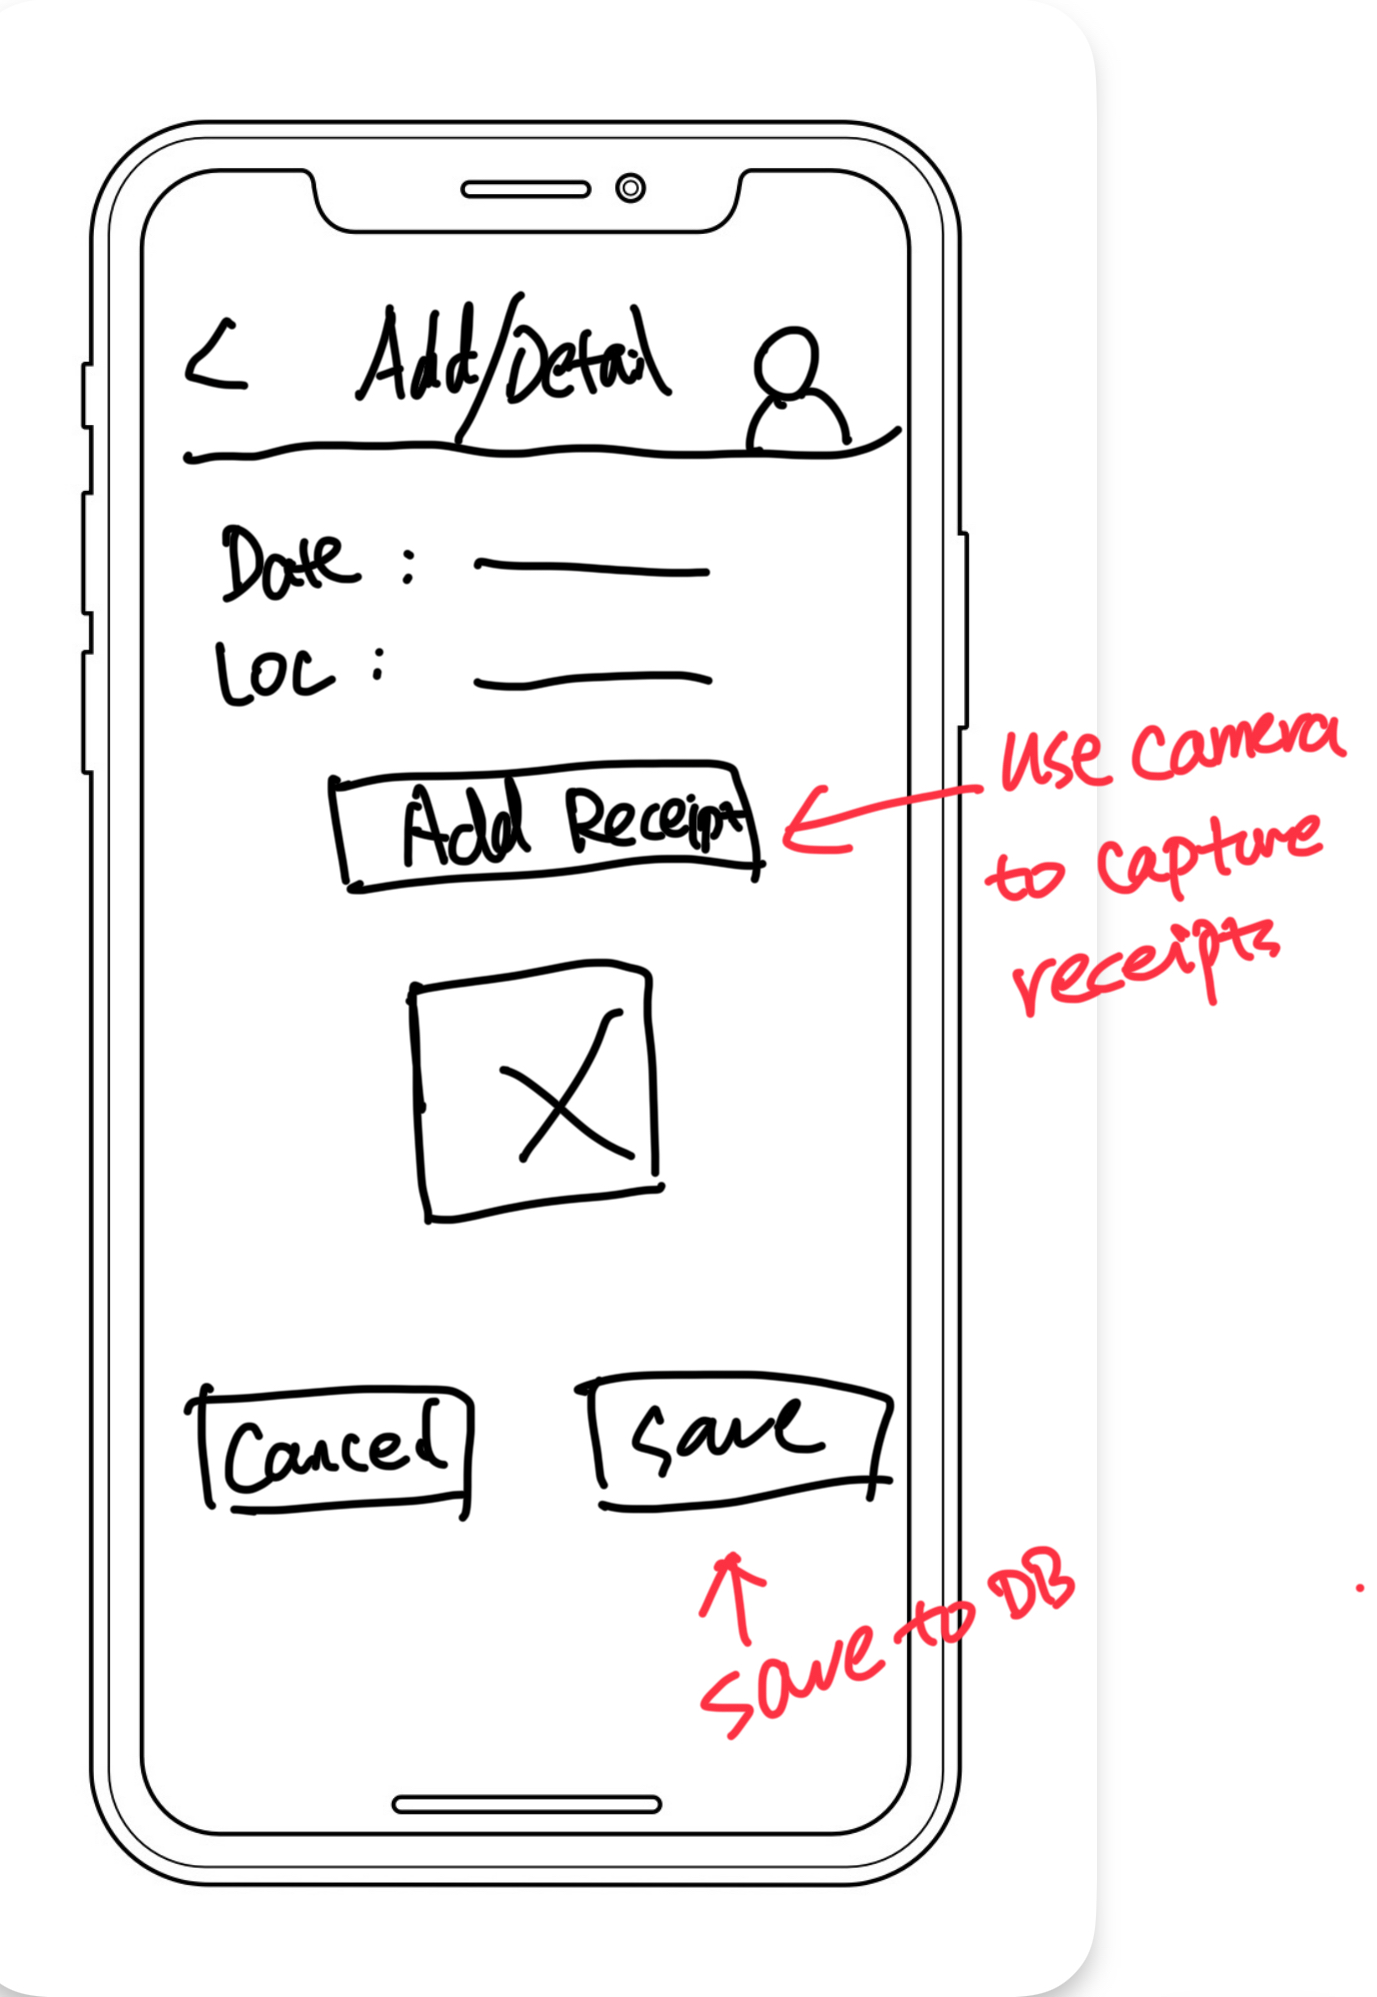 Add/Detail
Date :
Loc :
Add Receipt
use camera
to capture
receipts
Cancel
Save
save to DB